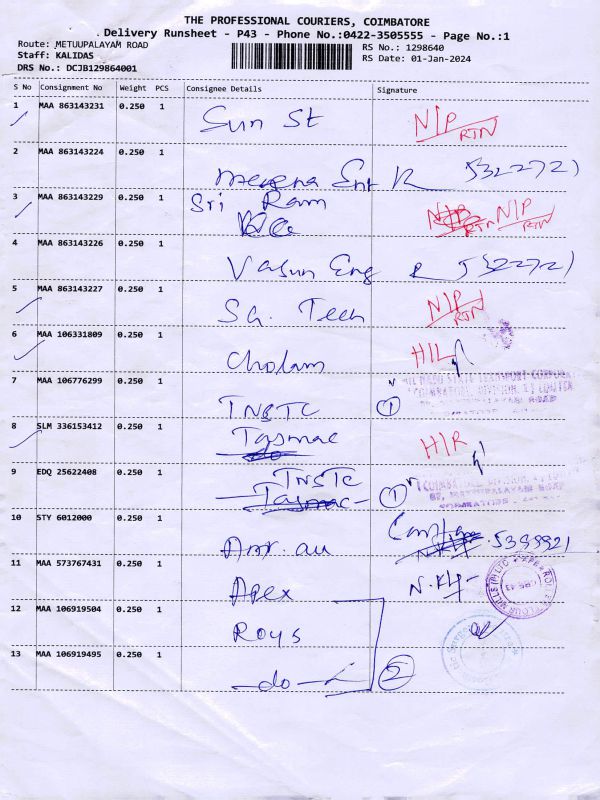 THE PROFESSIONAL COURIERS, COIMBATORE
Delivery Runsheet - P43 - Phone No.:0422-3505555 - Page No.:1
Route: METUUPALAYAM ROAD RS No.: 1298640
Staff: KALIDAS RS Date: 01-Jan-2024
DRS No.: DCJB129864001
S No Consignment No Weight PCS Consignee Details Signature
1 MAA 863143231 0.250 1 Sun St N/P RTN
2 MAA 863143224 0.250 1 Ent
3 MAA 863143229 0.250 1 Sri Ram N/P RTN N/P RTN
4 MAA 863143226 0.250 1 Vasun Eng
5 MAA 863143227 0.250 1 Sh. Tech N/P RTN
6 MAA 106331809 0.250 1 Cholam H/L
7 MAA 106776299 0.250 1 TNSTC 1
8 SLM 336153412 0.250 1 Tasmac H/R
9 EDQ 25622408 0.250 1 TNSTC Tasmac 1
10 STY 6012000 0.250 1
11 MAA 573767431 0.250 1 Apex
12 MAA 106919504 0.250 1 Roys
13 MAA 106919495 0.250 1 -do- 2